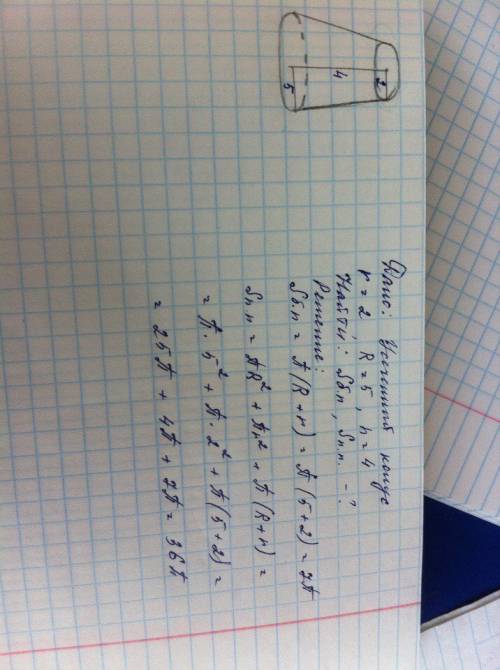 4
2
5
Дано: Усеченный конус
r = 2 R = 5, h = 4
Найти: Sб.п, Sп.п. - ?
Решение:
Sб.п = π(R+r) = π(5+2) = 7π
Sп.п = πR² + πr² + π(R+r) =
= π·5² + π·2² + π(5+2) =
= 25π + 4π + 7π = 36π